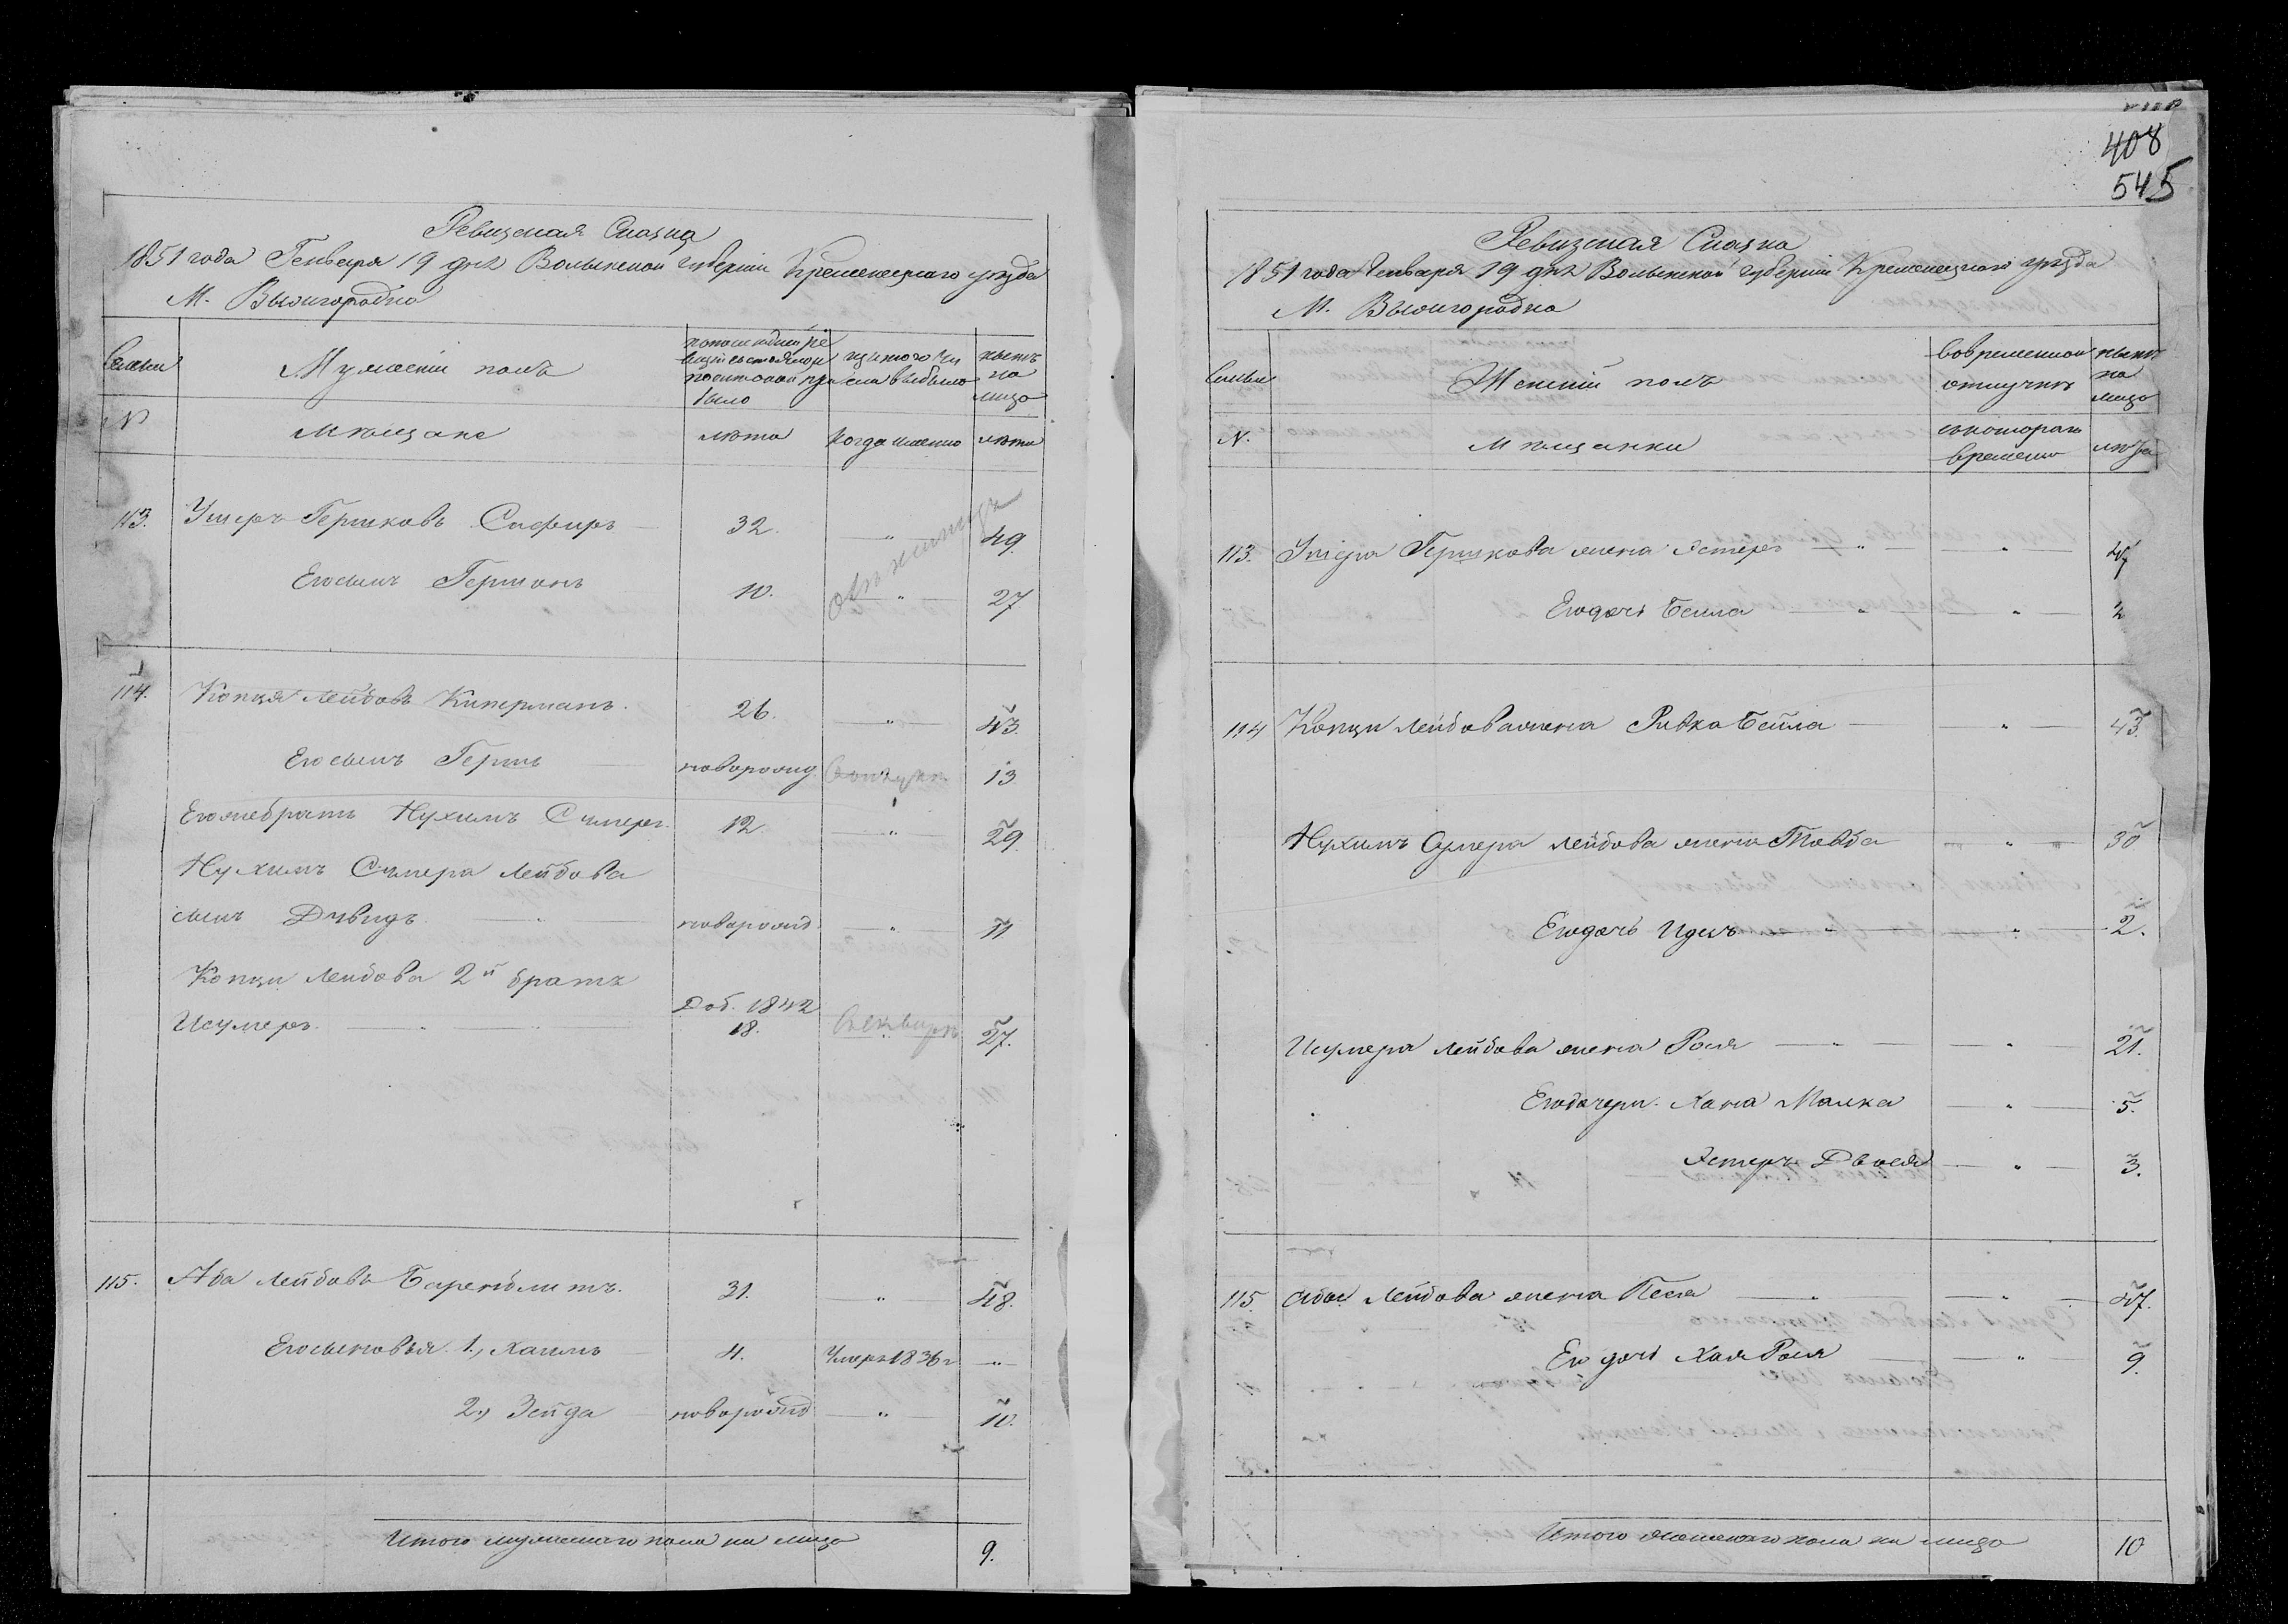 Ревизская Сказка
1851 года Генваря 19 дня Волынской губернии Кременецкого уезда
М. Вышгородка
Семьи
Мужеский полъ
по последней ревизии состояло и после оной прибыло
изъ того числа выбыло
ныне на лицо
N
Мещане
лета
когда именно
лета
113. Ушеръ Гершковъ Сафиръ 32. „ 49.
Его сынъ Гершонъ 10. „ 27
114. Копця Лейбовъ Киперманъ. 26. „ 43.
Его сынъ Гершъ новорожд. 13
Его же братъ Нухимъ Сумеръ 12 „ 29.
Нухимъ Сумера Лейбова
сынъ Дувидъ новорожд. „ 11
Копци Лейбова 2й братъ
Исумеръ. Доб. 1842 18. 27.
115. Аба Лейбовъ Баренблитъ. 31. „ 48.
Его сыновья 1., Хаимъ 4. Умеръ 1836 г „
2., Зейда новорожд „ 10.
Итого мужеского пола на лицо 9.
408
545
Ревизская Сказка
1851 года Генваря 19 дня Волынской губернии Кременецкой уезда
М. Вышгородка
Семьи
Женский полъ
во временной отлучке
ныне на лицо
N.
Мещанки
с котораго времени
лета
113. Ушера Гершкова жена Эстеръ „ „ 47
Его дочь Бейла „ „ 2
114 Копци Лейбова жена Ривка Бейла „ 43.
Нухимъ Сумера Лейбова жена Товба „ 30
Его дочь Идесъ „ „ 2.
Исумера Лейбова жена Рося „ „ 21.
Его дочери Хана Малка „ 5.
Эстеръ Двося „ 3.
115. Абы Лейбова жена Песя „ „ 47.
Его дочь Хая Рося „ 9.
Итого женского пола на лицо 10